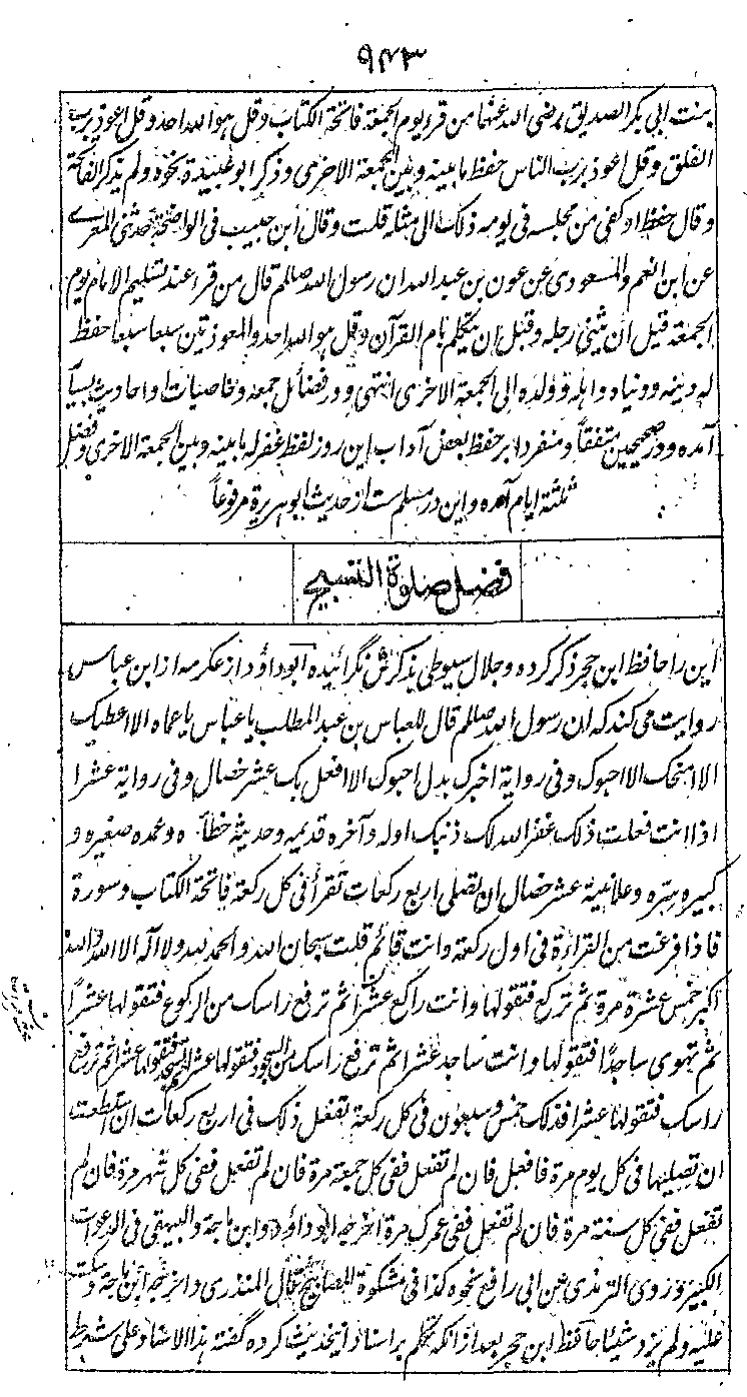 ۹۴۳
بنت ابی بکر الصدیق رضی الله عنهما من قرء یوم الجمعة فاتحة الکتاب وقل هو الله احد وقل اعوذ برب
الفلق وقل اعوذ برب الناس حفظ ما بینه وبین الجمعة الاخری وذکر ابو عبیدة نحوه ولم یذکر الفاتحة
وقال حفظ او کفی من مجلسه فی یومه ذلک الی مثله قلت وقال ابن حبیب فی الواضحة حدثنی المقری
عن ابن انعم والمسعودی عن عون بن عبد الله ان رسول الله صللم قال من قرا عند تسلیم الامام یوم
الجمعة قبل ان یثنی رجله وقبل ان یتکلم بام القرآن وقل هو الله احد والمعوذتین سبعا سبعا حفظ
له دینه ودنیاه واهله وولده الی الجمعة الاخری انتهی ودر فضائل جمعه وخاصیات او احادیث بسیار
آمده ودر صحیحین متفقاً ومنفردا بر حفظ بعض آداب این روز لفظ غفر له ما بینه وبین الجمعة الاخری وفضل
ثلثة ایام آمده واین در مسلم ست از حدیث ابو هریرة مرفوعاً
فضل صلوة التسبیح
این را حافظ ابن حجر ذکر کرده وجلال سیوطی بذکرش نگرائیده ابو داؤد از عکرمه از ابن عباس
روایت می کند که ان رسول الله صللم قال للعباس بن عبد المطلب یا عباس یا عماه الا اعطیک
الا امنحک الا احبوک وفی روایة اخبرک بدل احبوک الا افعل بک عشر خصال وفی روایة عشرا
اذا انت فعلت ذلک غفر الله لک ذنبک اوله وآخره قدیمه وحدیثه خطأه وعمده صغیره و
کبیره سره وعلانیة عشر خصال ان تصلی اربع رکعات تقرأ فی کل رکعة فاتحة الکتاب وسورة
فاذا فرغت من القراءة فی اول رکعة وانت قائم قلت سبحان الله والحمد لله ولا اله الا الله والله
اکبر خمس عشرة مرة ثم ترکع فتقولها وانت راکع عشرا ثم ترفع راسک من الرکوع فتقولها عشراً
ثم تهوی ساجداً فتقولها وانت ساجد عشرا ثم ترفع راسک من السجود فتقولها عشرا ثم تسجد فتقولها عشرا ثم ترفع
راسک فتقولها عشرا فذلک خمس وسبعون فی کل رکعة تفعل ذلک فی اربع رکعات ان استطعت
ان تصلیها فی کل یوم مرة فافعل فان لم تفعل ففی کل جمعة مرة فان لم تفعل ففی کل شهر مرة فان لم
تفعل ففی کل سنة مرة فان لم تفعل ففی عمرک مرة اخرجه ابو داؤد وابن ماجة والبیهقی فی الدعوات
الکبیر وروی الترمذی عن ابی رافع نحوه کذا فی مشکوة المصابیح قال المنذری واخرجه ابن ماجة وسکت
علیه ولم یزد شیئا حافظ ابن حجر بعد ازانکه تکلم بر اسناد اینحدیث کرده گفته هذا الاسناد علی شرط